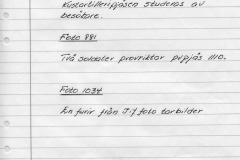 Kustartilleripjäsen studeras av
besökare.
Foto 881
Två soldater provriktar pvpjäs 1110.
Foto 1034
En furir från I:17 foto tar bilder